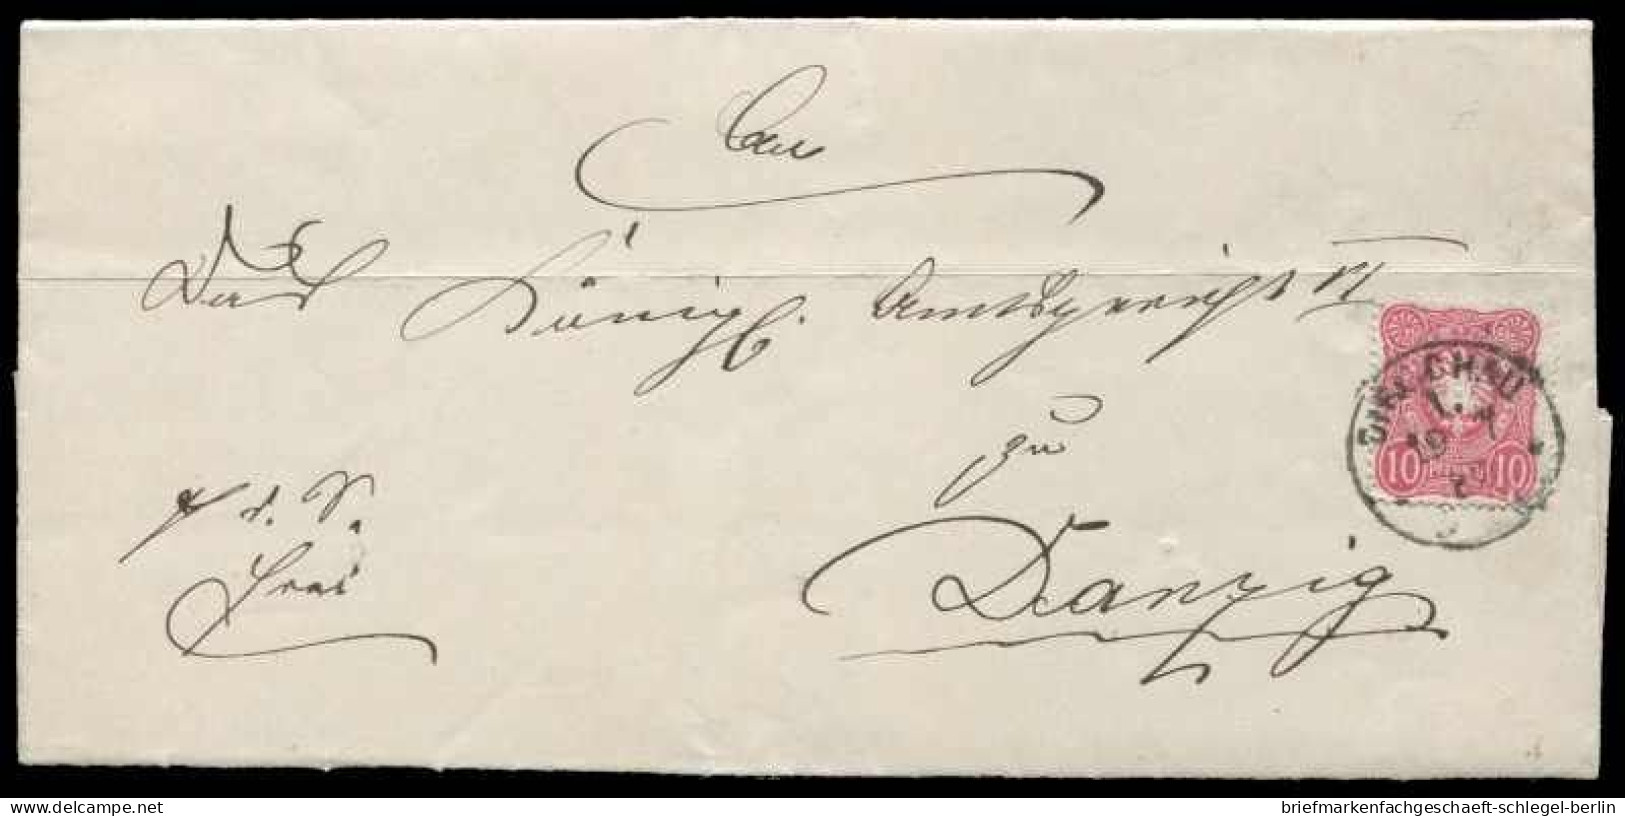 An
Das Königl. Amtsgericht VI
zu
Danzig
frei
DIRSCHAU
10 10
delcampe.net
briefmarkenfachgeschaeft-schlegel-berlin